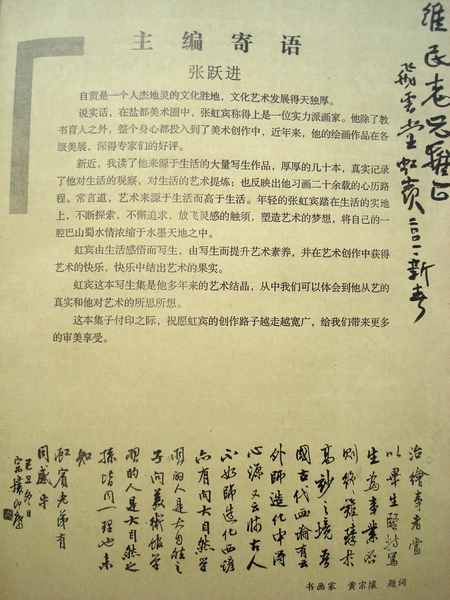 主编寄语
张跃进
自贡是一个人杰地灵的文化胜地，文化艺术发展得天独厚。
说实话，在盐都美术圈中，张虹宾称得上是一位实力派画家。他除了教
书育人之外，整个身心都投入到了美术创作中，近年来，他的绘画作品在各
级美展，深得专家们的好评。
新近，我读了他来源于生活的大量写生作品，厚厚的几十本，真实记录
了他对生活的观察，对生活的艺术提炼；也反映出他习画二十余载的心历路
程。常言道，艺术来源于生活而高于生活。年轻的张虹宾踏在生活的实地
上，不断探索，不懈追求，放飞灵感的触须，塑造艺术的梦想，将自己的一
腔巴山蜀水情浓缩于水墨天地之中。
虹宾由生活感悟而写生，由写生而提升艺术素养，并在艺术创作中获得
艺术的快乐，快乐中结出艺术的果实。
虹宾这本写生集是他多年来的艺术结晶，从中我们可以体会到他从艺的
真实和他对艺术的所思所想。
这本集子付印之际，祝愿虹宾的创作路子越走越宽广，给我们带来更多
的审美享受。
维民老兄雅正
二〇一一新春
治绘事者当
以毕生
生为事业
高妙之境
国古代画论有云
外师造化中得
心源
有向大自然学
习的人是大自然之
子向美术馆学
习的人是大自然之
孙皆同一理也未
知
虹宾老弟有
同感乎
书画家 黄宗壤 题词